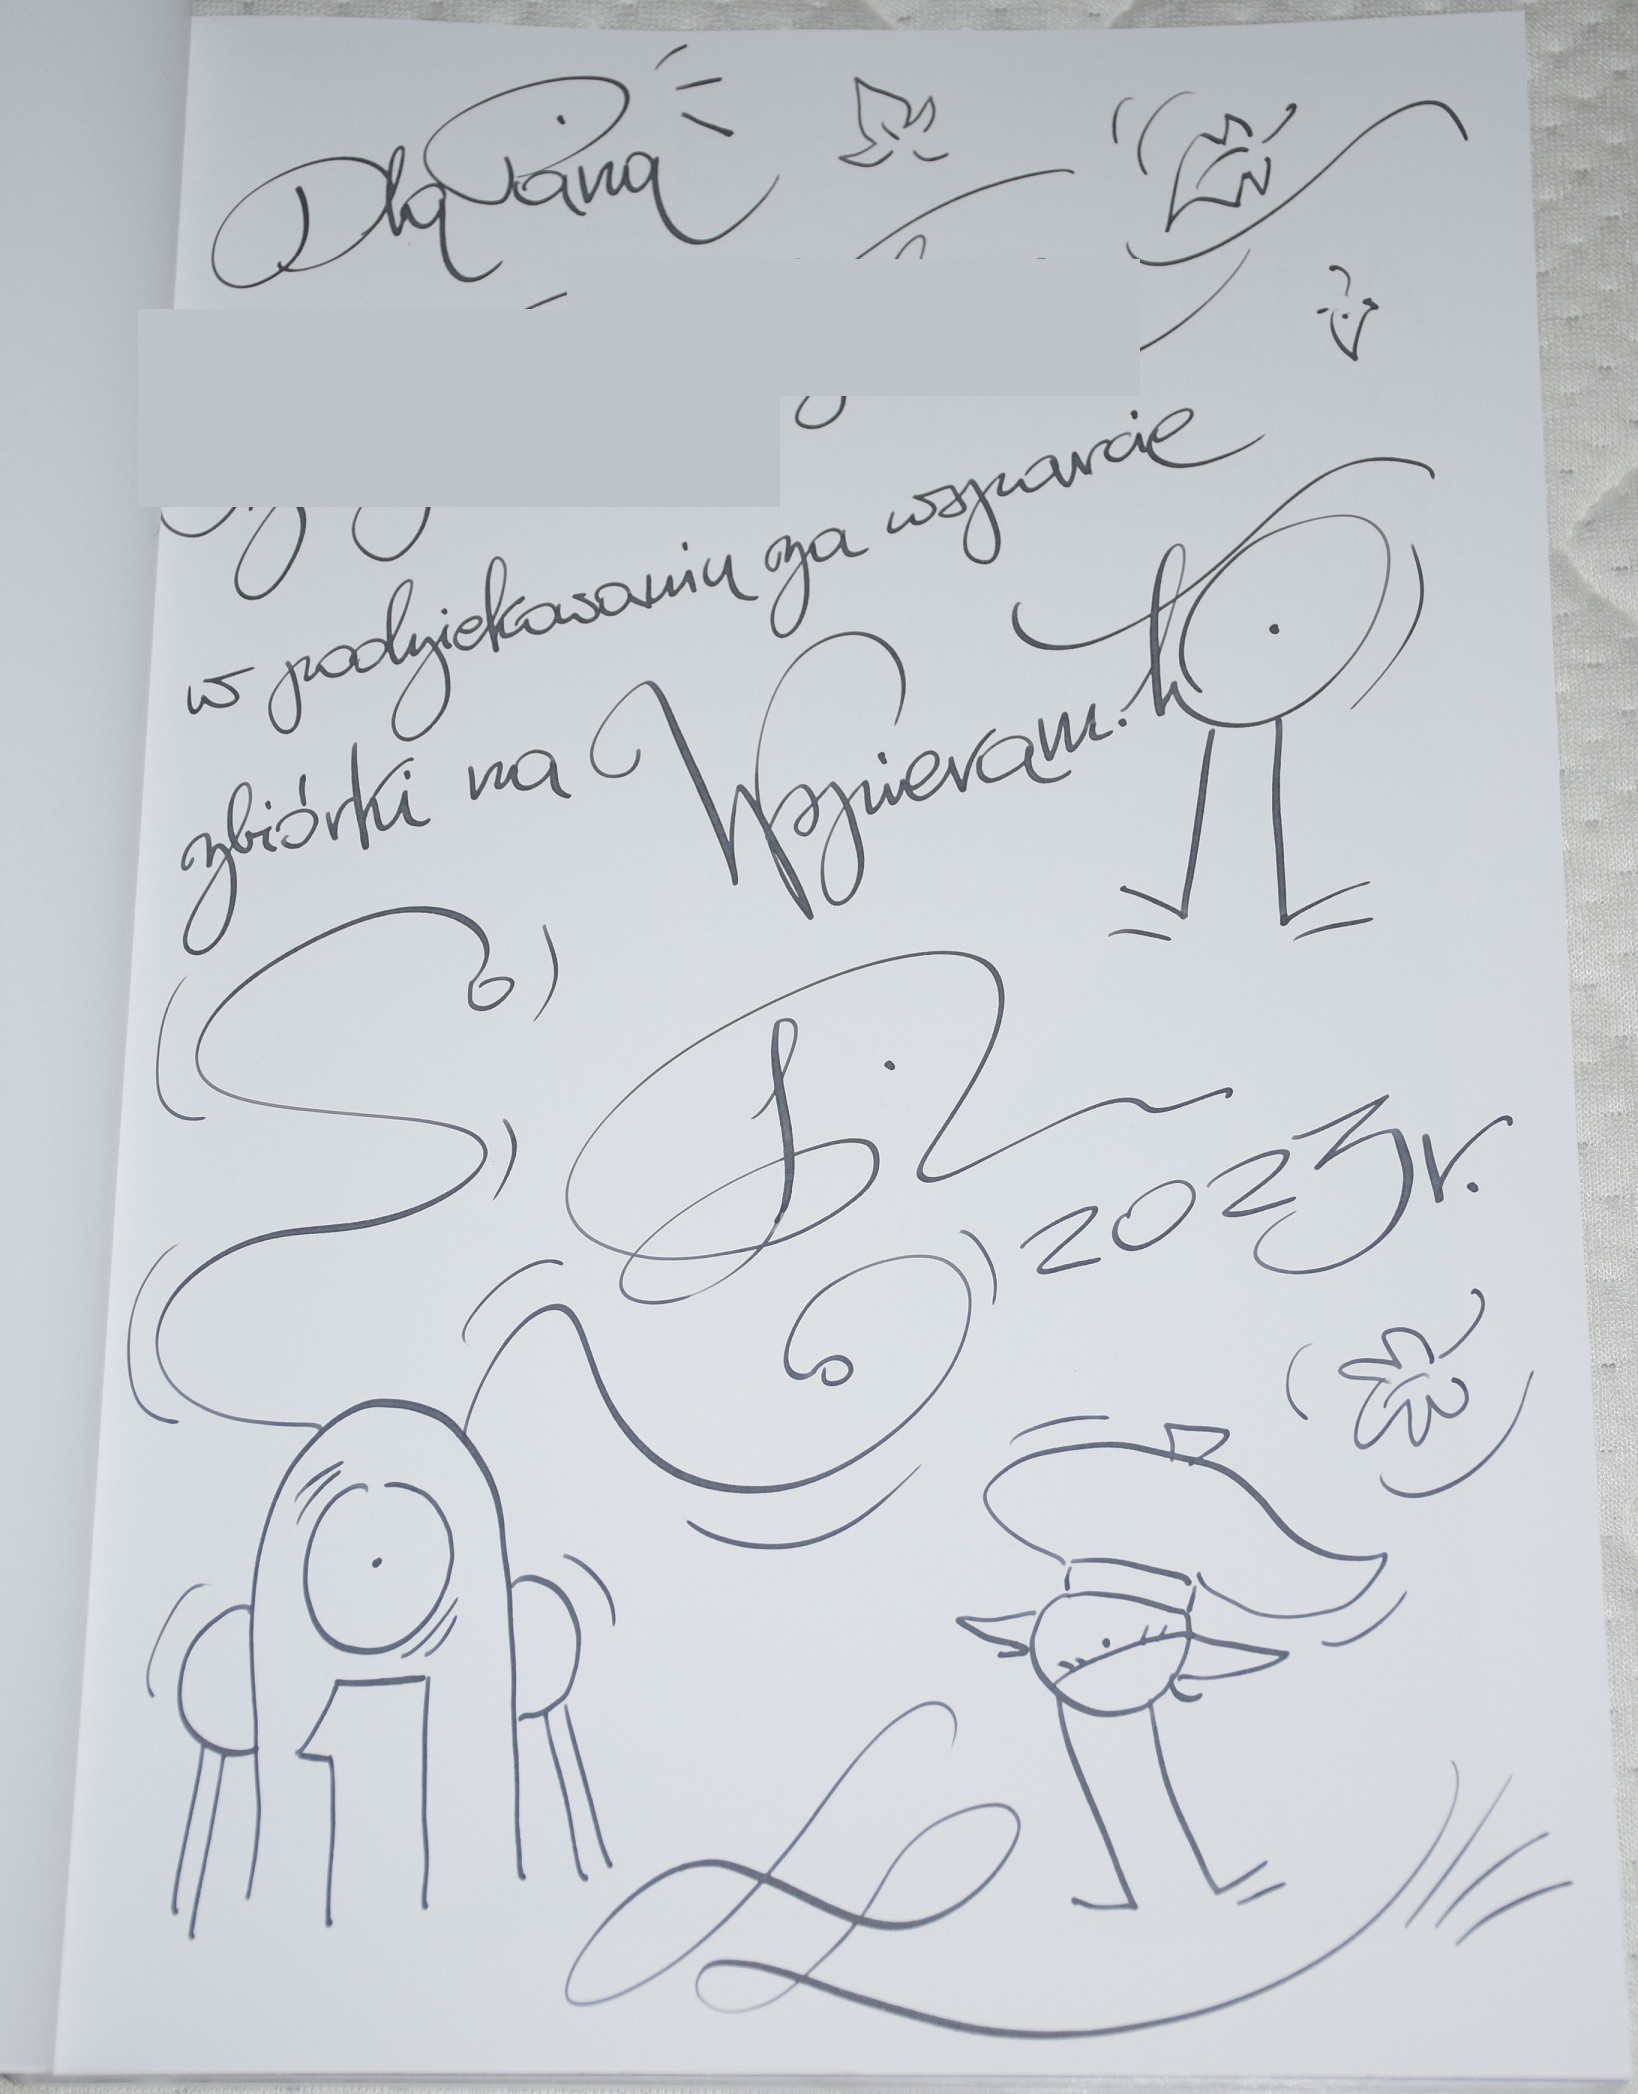 Dla Pana
w podziękowaniu za wsparcie
zbiórki na Wspieram.to
2023r.
1